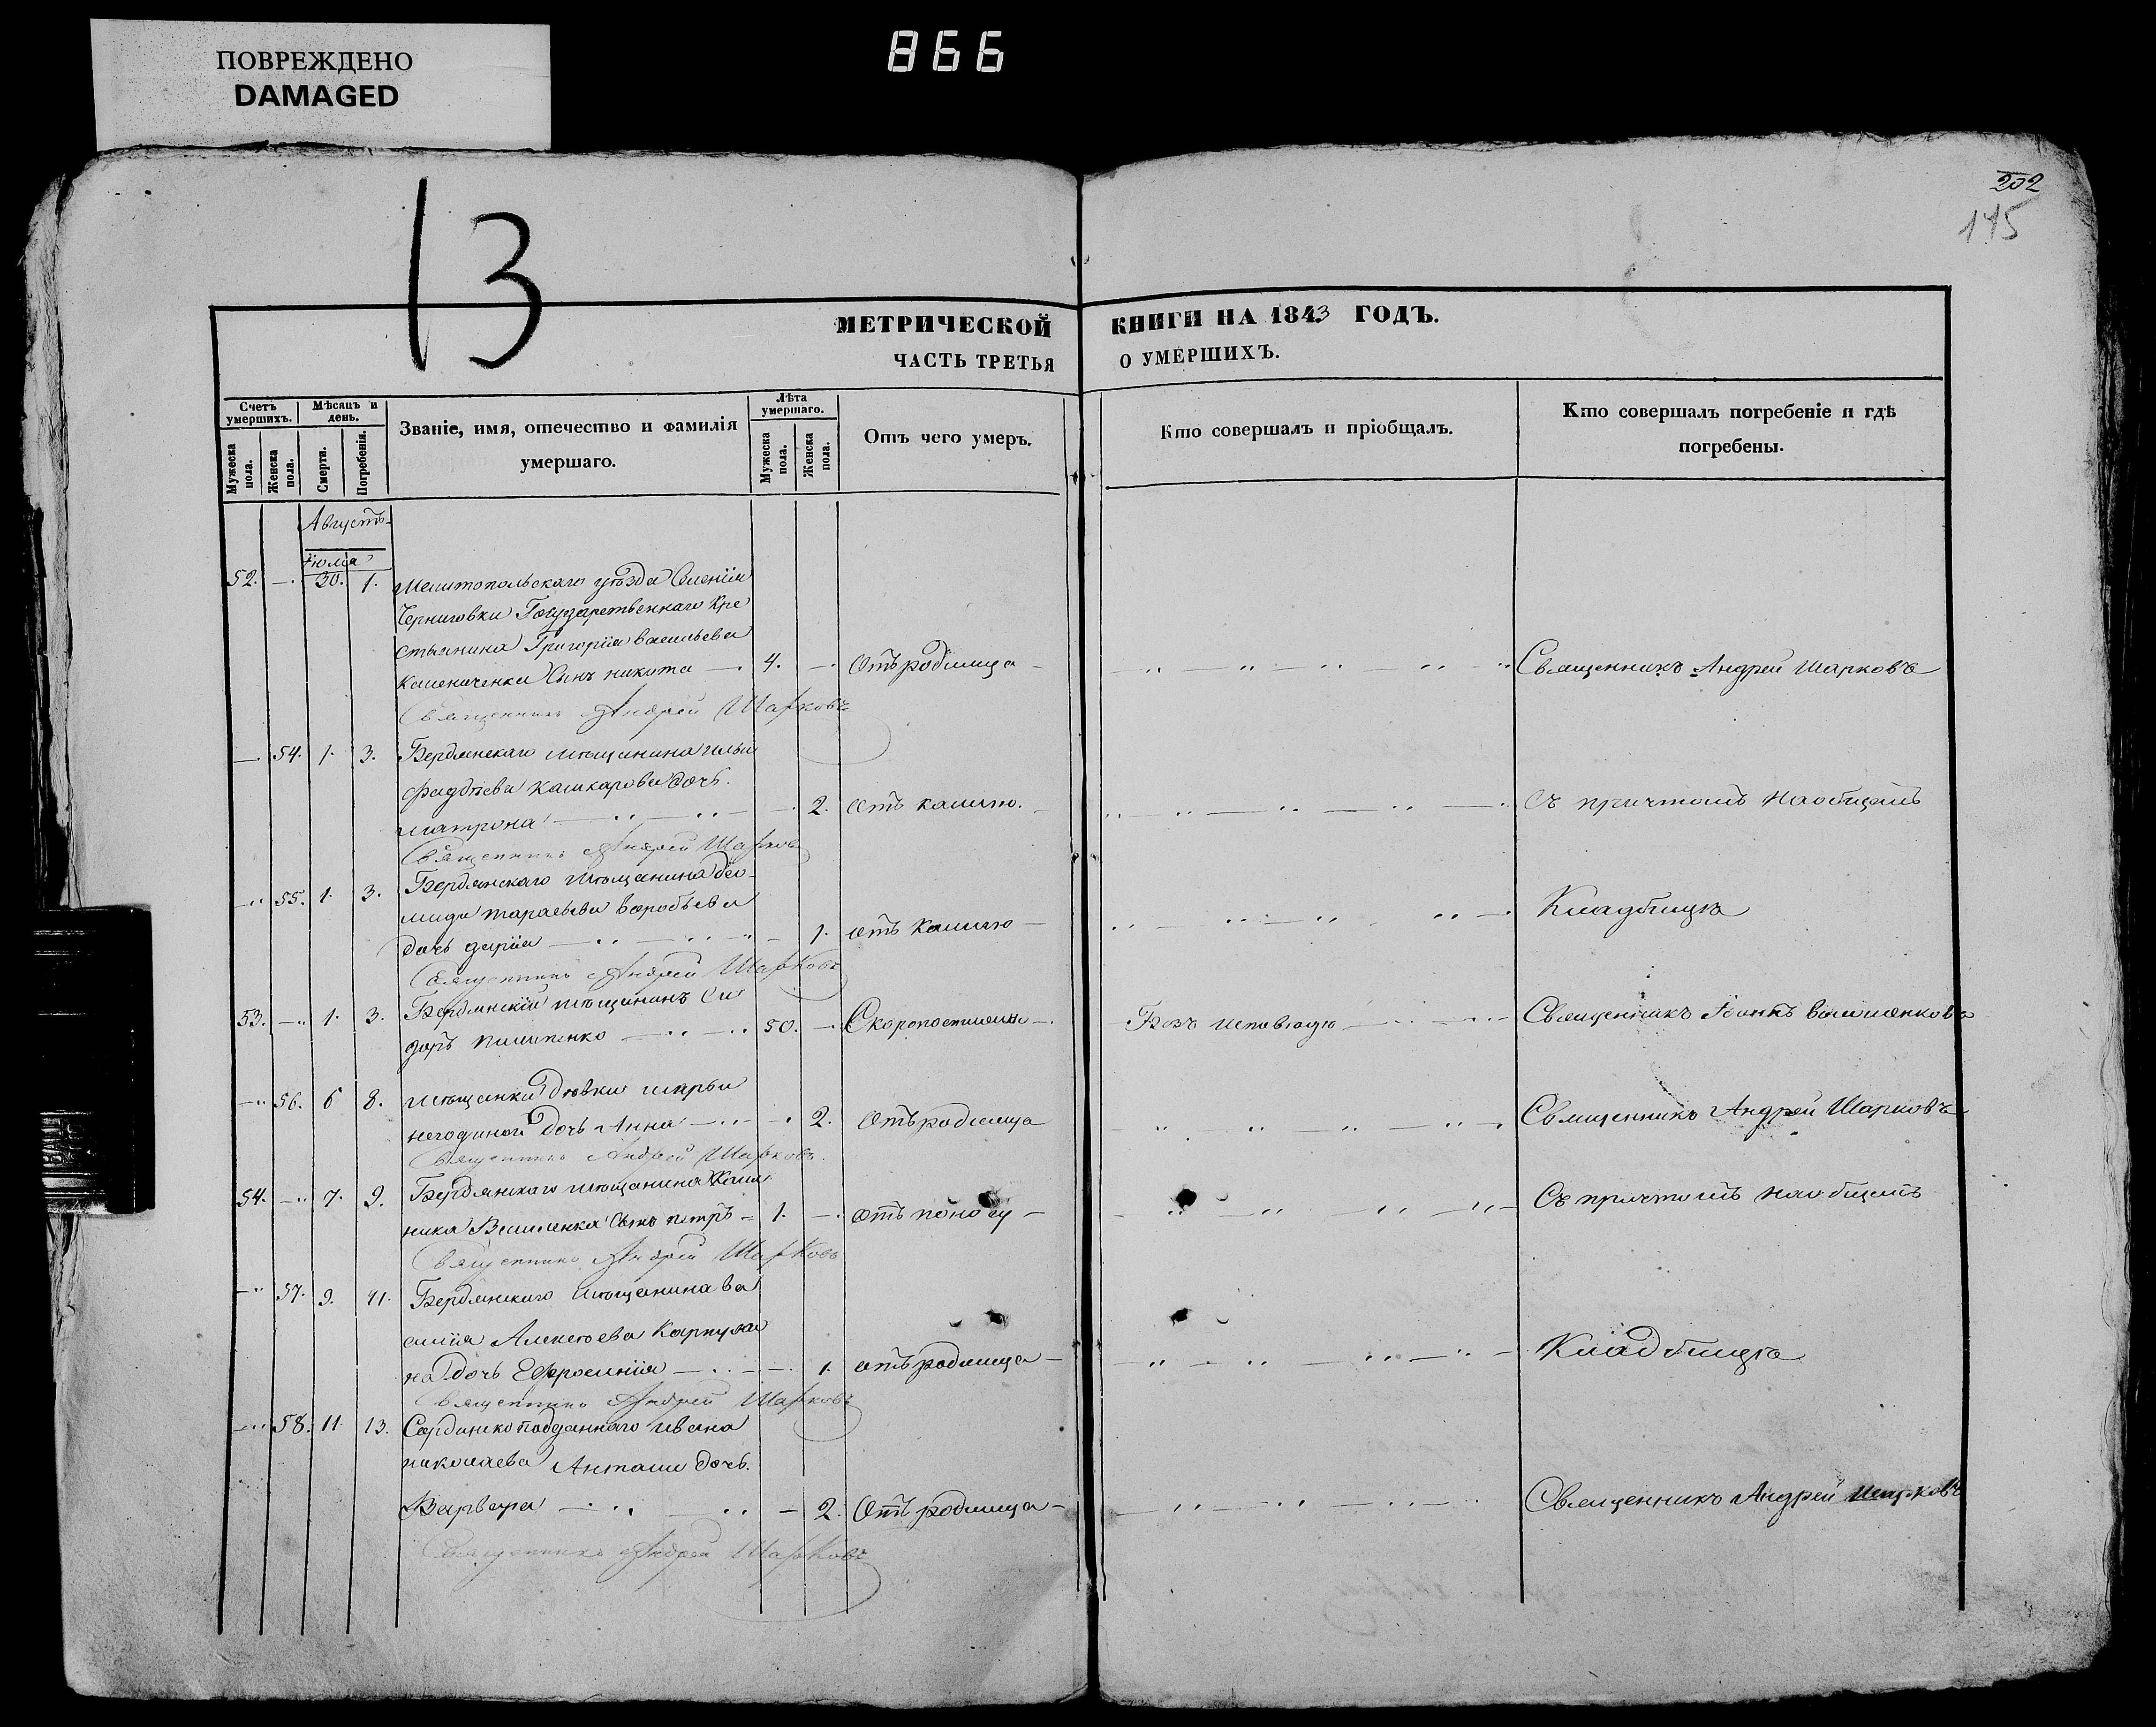 ПОВРЕЖДЕНО
DAMAGED
866
202
145
13
МЕТРИЧЕСКОЙ КНИГИ НА 1843 ГОДЪ.
ЧАСТЬ ТРЕТЬЯ О УМЕРШИХЪ.
Счетъ умершихъ.
Мужеска пола.
Женска пола.
Мѣсяцъ и день.
Смерти.
Погребенія.
Званіе, имя, отечество и фамилія
умершаго.
Лѣта умершаго.
Мужеска пола.
Женска пола.
Отъ чего умеръ.
Кто совершалъ и пріобщалъ.
Кто совершалъ погребеніе и гдѣ
погребены.
Августъ
Іюля
52. — 30. 1. Мелитопольскаго уѣзда Селенія
Черниговки Государственнаго Кре
стьянина Григорія Васильева
Сынъ Никита — 4. — Отъ родимца — Священникъ Андрей Шарковъ
Священникъ Андрей Шарковъ
— 54. 1. 3. Бердянскаго мѣщанина Ильи
Фадѣева Кашкарова дочь
Матрона — 2. отъ кашлю. съ причтомъ на общемъ
Священникъ Андрей Шарковъ
— 55. 1. 3. Бердянскаго мѣщанина Дио
мида Тарасьева Воробьева
дочь Дарія — 1. отъ кашлю — Кладбищѣ
Священникъ Андрей Шарковъ
53. — 1. 3. Бердянскій мѣщанинъ Си
доръ Пилипенко — 50. — Скоропостижно — Безъ исповѣди — Священникъ
— 56. 6 8. мѣщанки Дѣвки Марьи
Негодиной Дочь Анна — 2. Отъ родимца Священникъ Андрей Шарковъ
Священникъ Андрей Шарковъ.
54. — 7. 9. Бердянскаго мѣщанина
ника Сынъ Петръ — 1. — отъ поносу — Съ причтомъ на общемъ
Священникъ Андрей Шарковъ
— 57. 9. 11. Бердянскаго мѣщанина Ва
силія Алексѣева
на дочь Ефросинія — 1. отъ родимца — Кладбищѣ
Священникъ Андрей Шарковъ
— 58. 11. 13. Сардинскоподданнаго Ивана
Николаева дочь
Варвара — 2. Отъ родимца — Священникъ Андрей Шарковъ
Священникъ Андрей Шарковъ